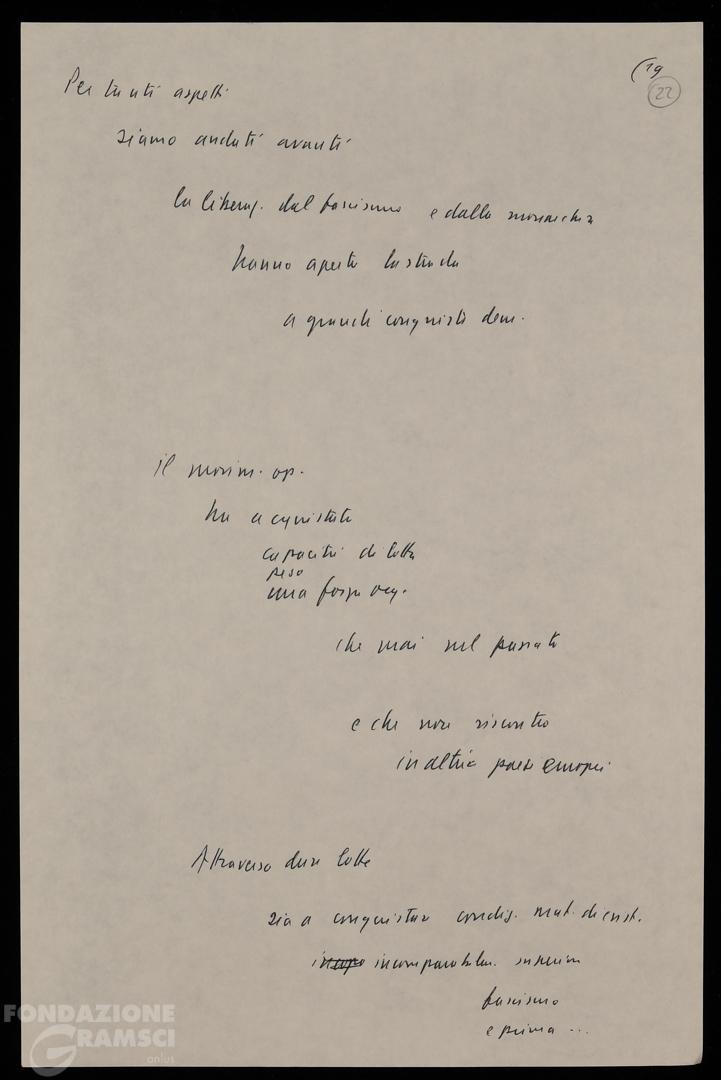 (19
22
Per tanti aspetti
siamo andati avanti
la liberaz. dal fascismo e dalla monarchia
hanno aperto la strada
a grandi conquiste dem.
il movim. op.
ha acquistato
capacità di lotta
peso
una forza org.
che mai nel passato
e che non riscontro
in altri paesi europei
Attraverso dure lotte
si è conquistat condiz. mat. di esist.
incomparabilm. superiori
fascismo
e prima ...
FONDAZIONE
GRAMSCI
onlus